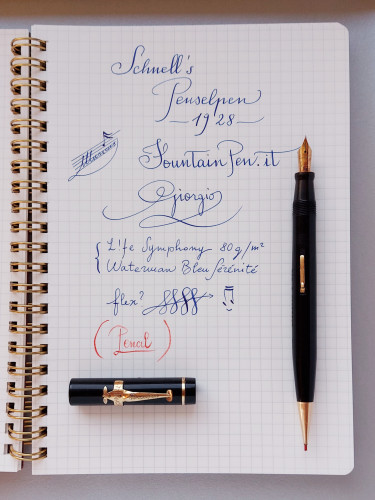 Schnell's
Penselpen
— 1928 —
FountainPen.it
Giorgio
L!fe Symphony 80 g/m²
Waterman Bleu Sérénité
flex?
(Pencil)